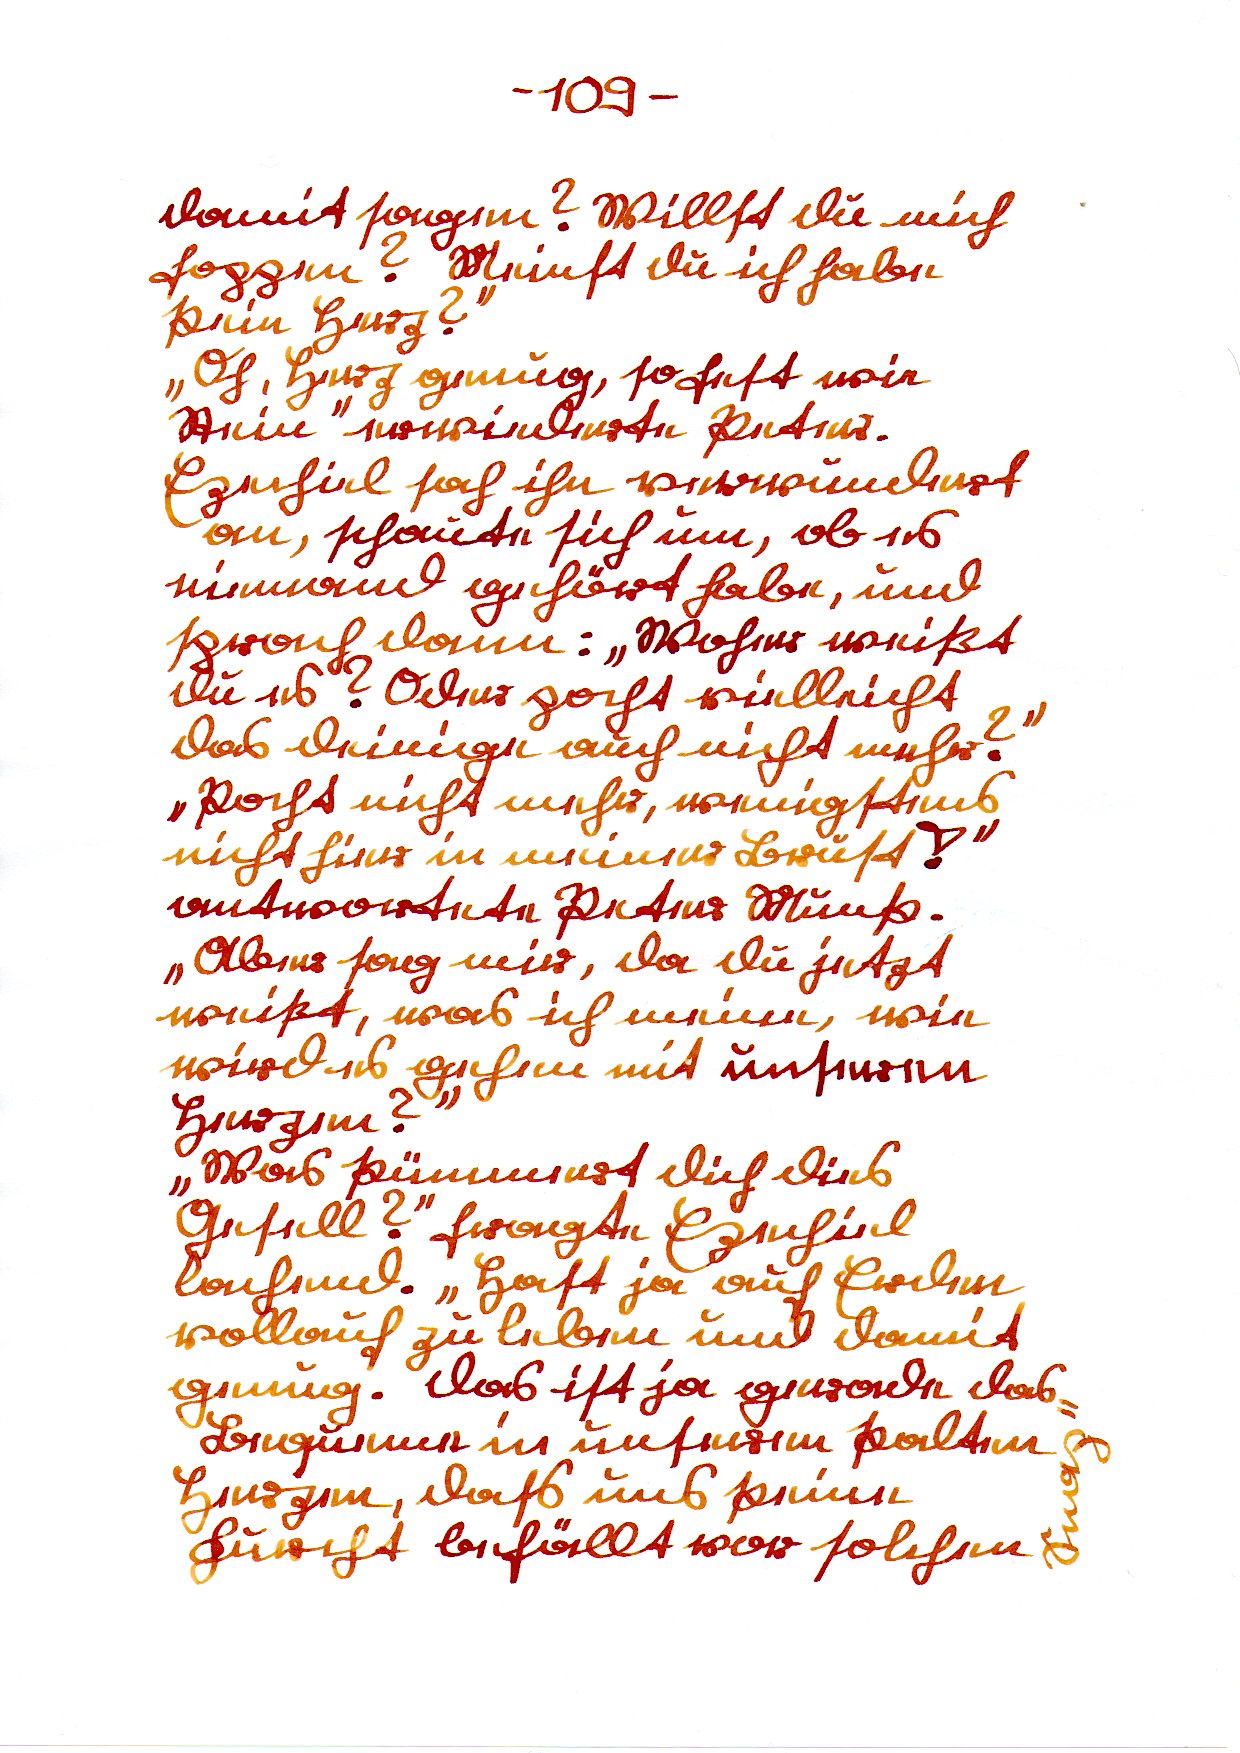 -109-
damit sagen? Willst du mich
foppen? Meinst du ich habe
kein Herz?"
„Oh, Herz genug, so fest wie
Stein" erwiederte Peter.
Ezechiel sah ihn verwundert
an, schaute sich um, ob es
niemand gehört habe, und
sprach dann: „Woher weißt
du es? Oder pocht vielleicht
das deinige auch nicht mehr?"
„Pocht nicht mehr, wenigstens
nicht hier in meiner Brust!"
antwortete Peter Munk.
„Aber sag mir, da du jetzt
weißt, was ich meine, wie
wird es gehen mit unseren
Herzen?"
„Was kümmert dich dies
Gesell?" fragte Ezechiel
lachend. „Hast ja auf Erden
vollauf zu leben und damit
genug. Das ist ja gerade das
Bequeme in unseren kalten
Herzen, daß uns keine
Furcht befällt vor solchen